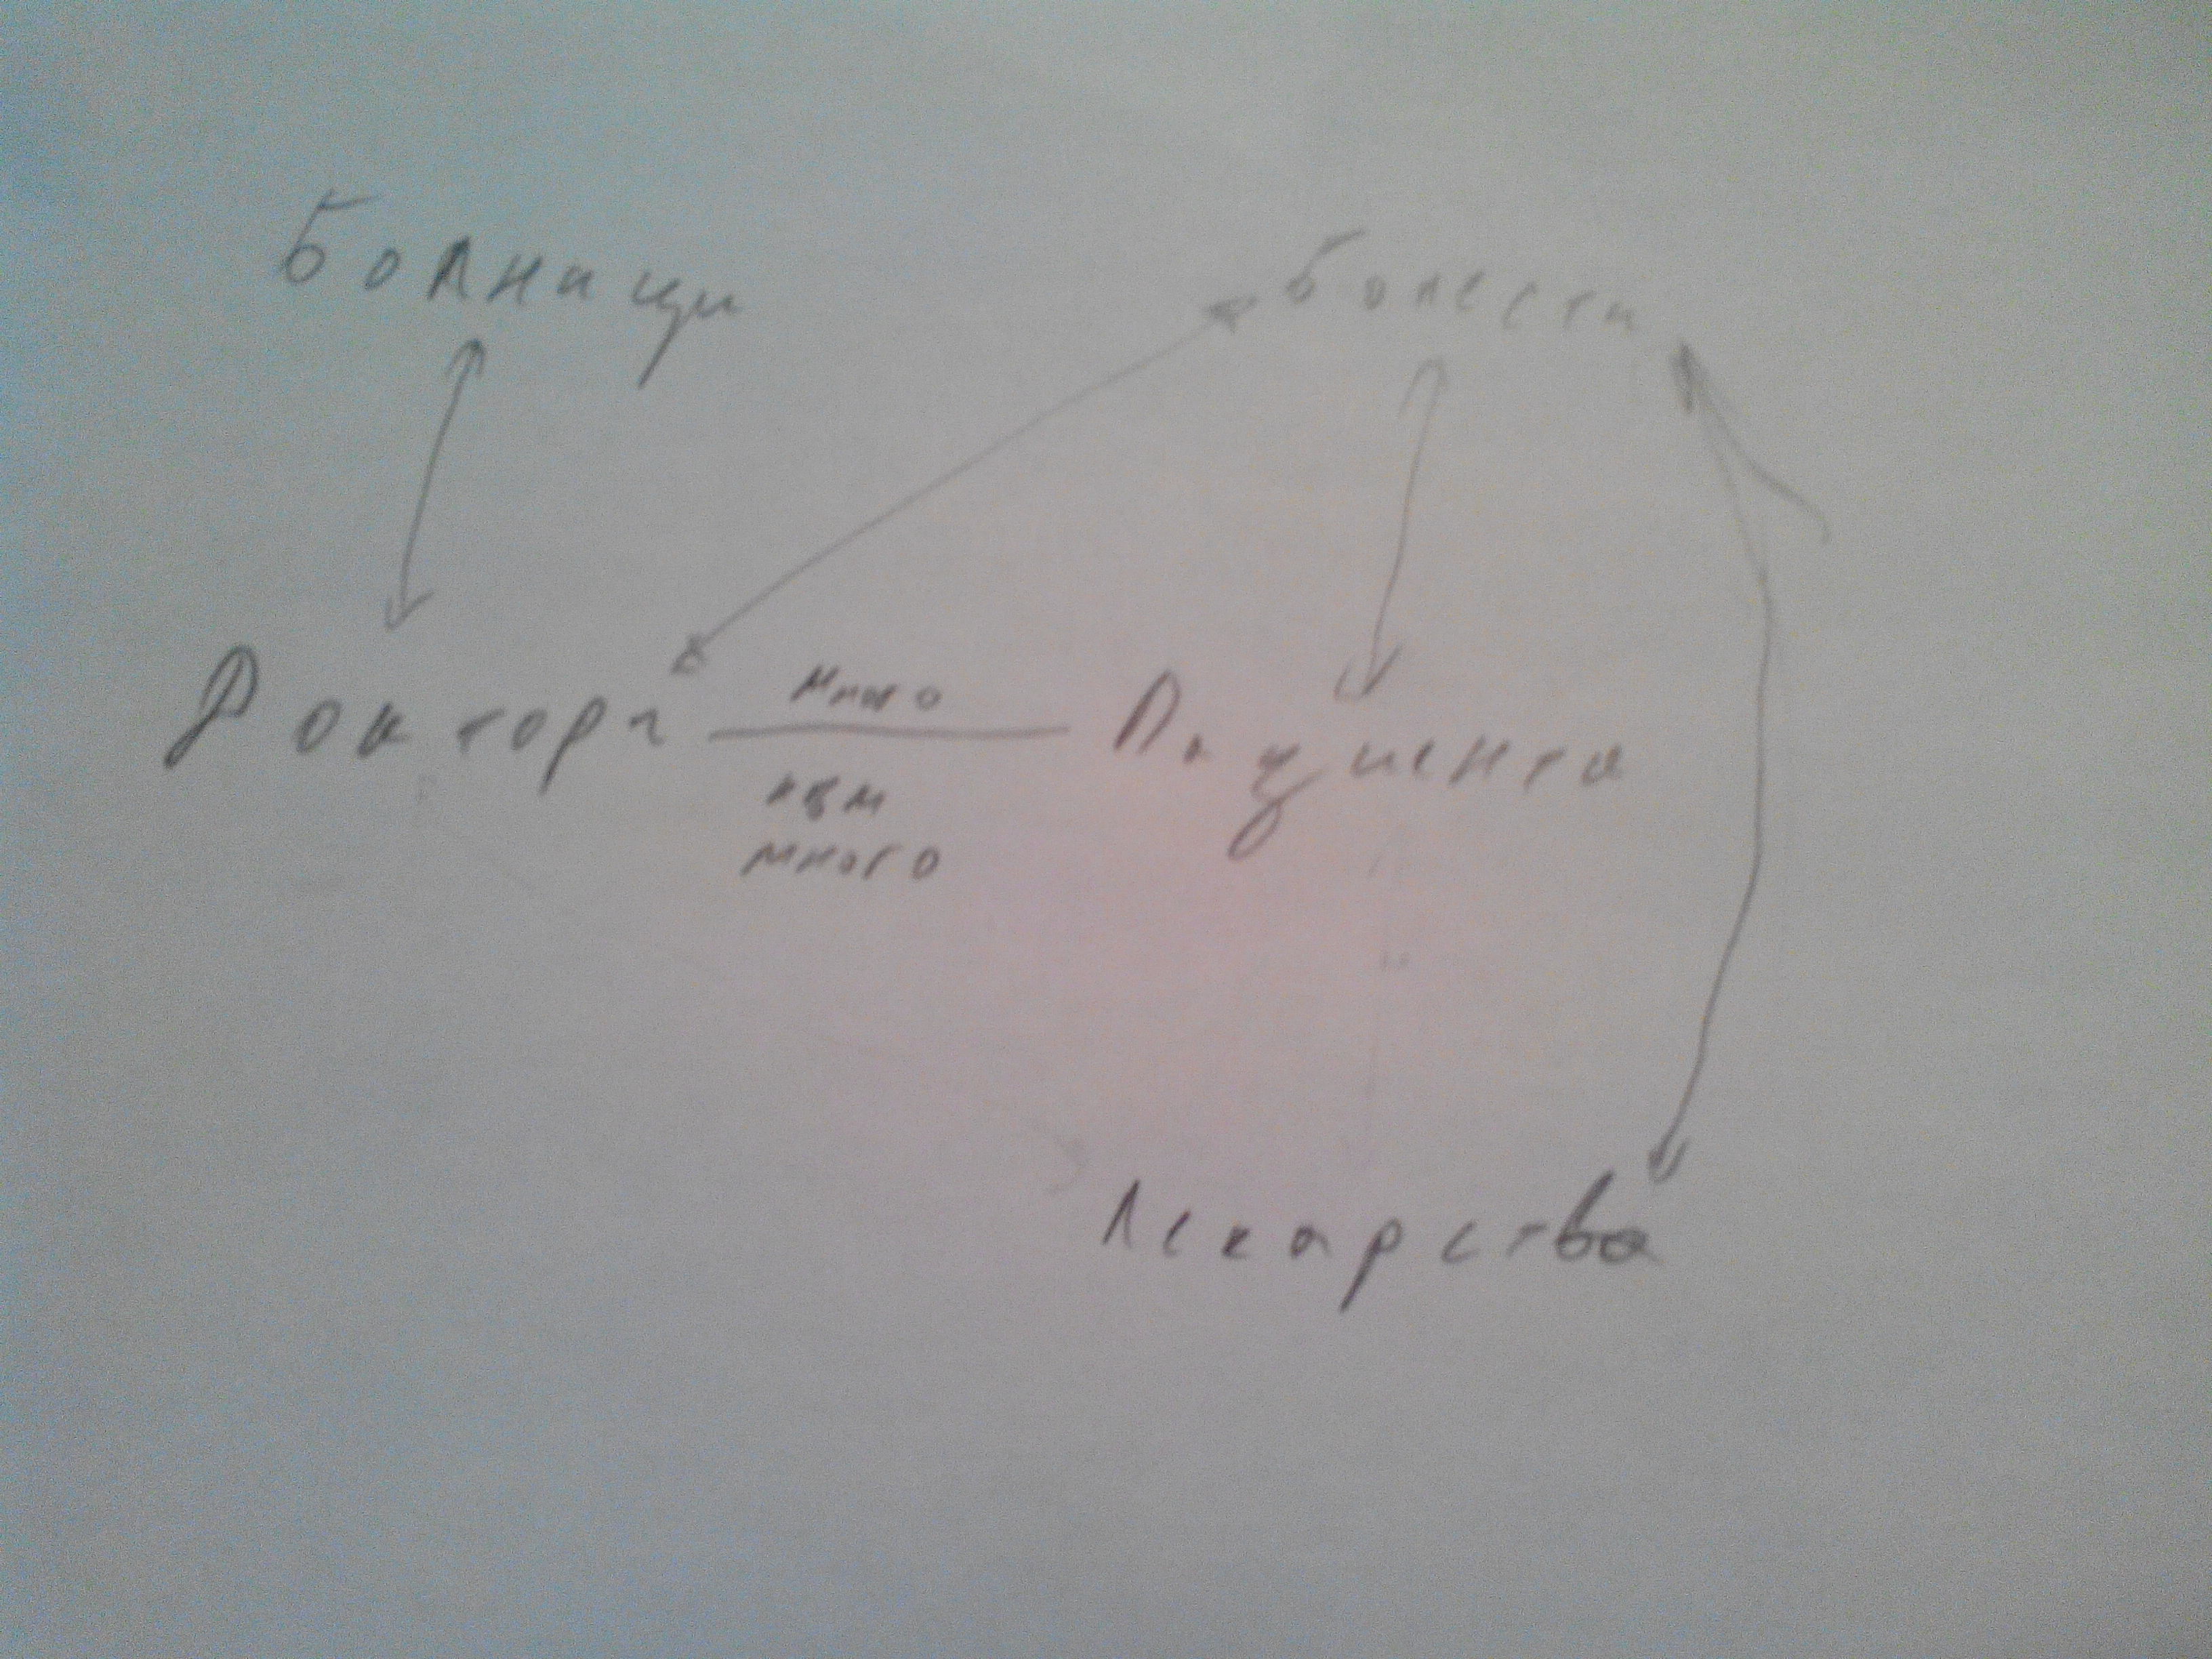 Болници
Болести
Доктори
много
към
много
Пациента
Лекарства